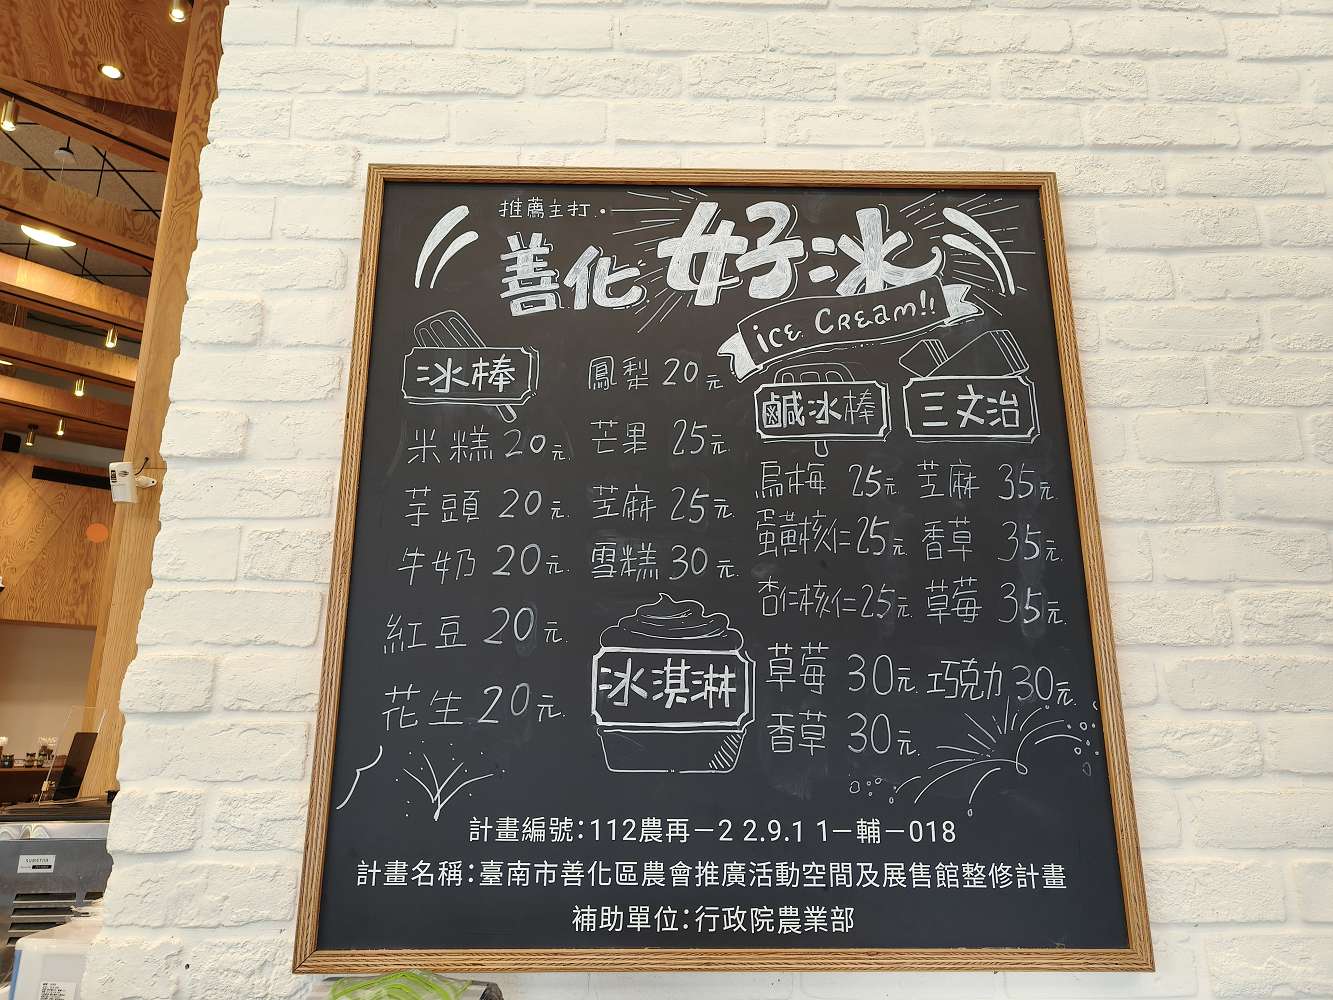 推薦主打.
善化好冰
ice CREam!!
冰棒
米糕 20元.
芋頭 20元.
牛奶 20元.
紅豆 20元.
花生 20元.
鳳梨 20元
芒果 25元.
苙麻 25元.
雪糕 30元.
冰淇淋
鹹冰棒
烏梅 25元.
蛋黃核仁 25元
杏仁核仁 25元
草莓 30元.
香草 30元.
巧克力 30元.
三文治
苙麻 35元.
香草 35元.
草莓 35元.
計畫編號:112農再－2 2.9.1 1－輔－018
計畫名稱:臺南市善化區農會推廣活動空間及展售館整修計畫
補助單位:行政院農業部